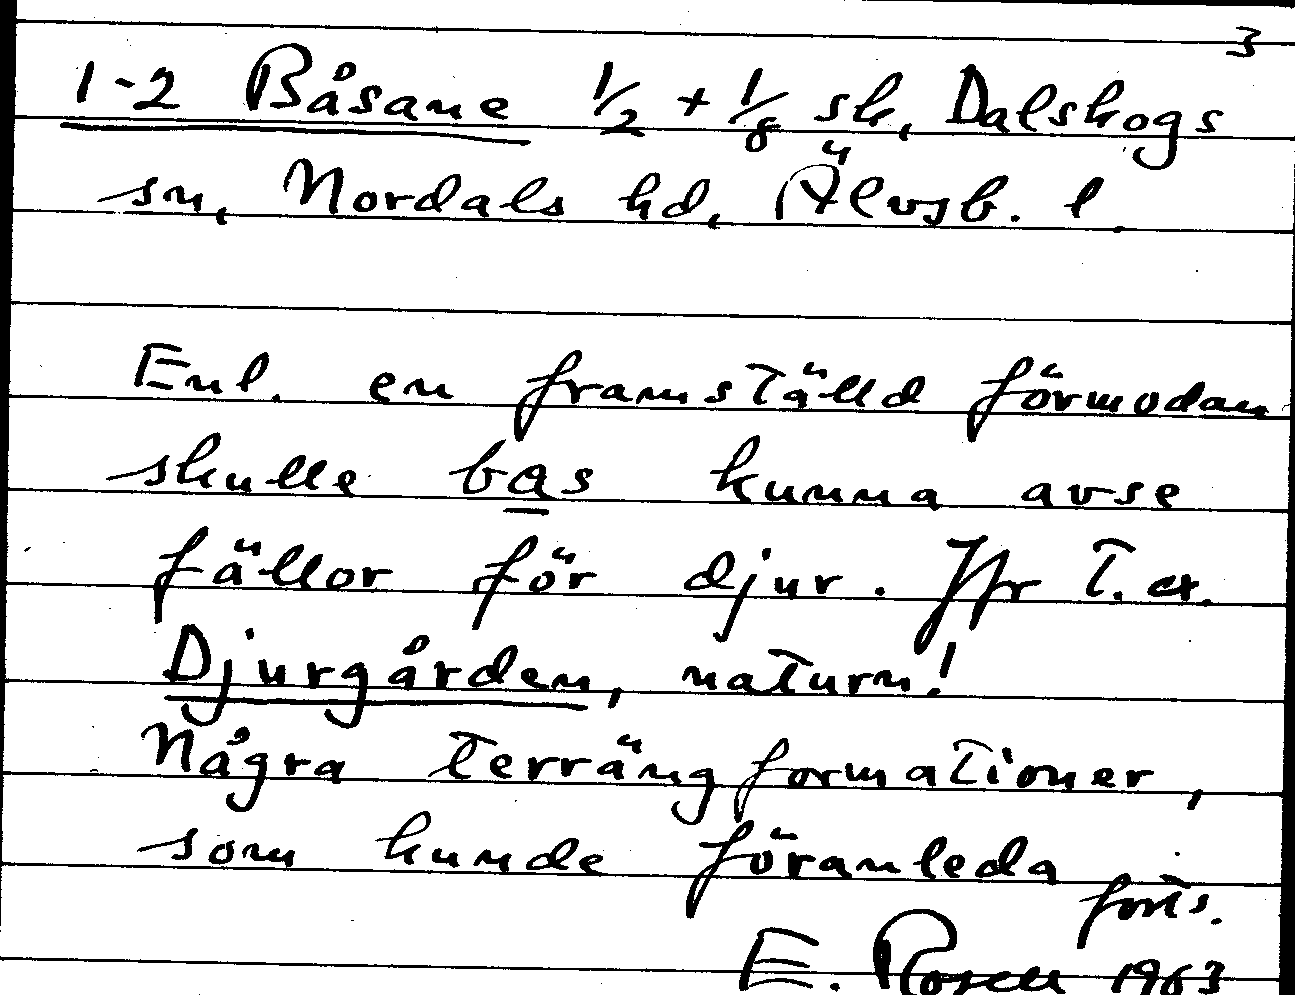 3
1-2 Båsane 1/2 + 1/8 sk, Dalskogs
sn, Nordals hd, Älvsb. l.
Enl. en framställd förmodan
skulle bas kunna avse
fällor för djur. Jfr t. ex.
Djurgården, naturn!
Några terrängformationer,
som kunde föranleda
forts.
E. Rosell 1963